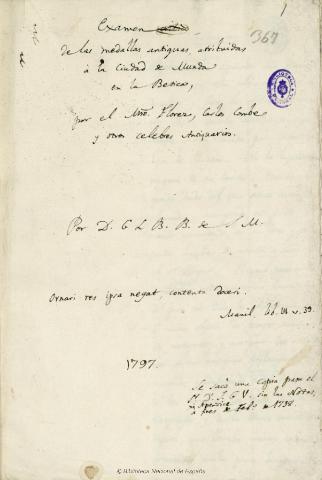 1
Examen critico
367
de las medallas antiguas atribuidas
à la Ciudad de Munda
en la Betica,
por el Mro. Florez, Carlos Combe
y otros celebres Antiquarios.
Por D. C L B. B. de S M.
Ornari res ipsa negat, contenta doceri.
Manil. lib. III v. 39.
1797.
Se sacò una copia para el
sin las Notas,
ni Apendice
à tres de Feb.º de 1798
© Biblioteca Nacional de España